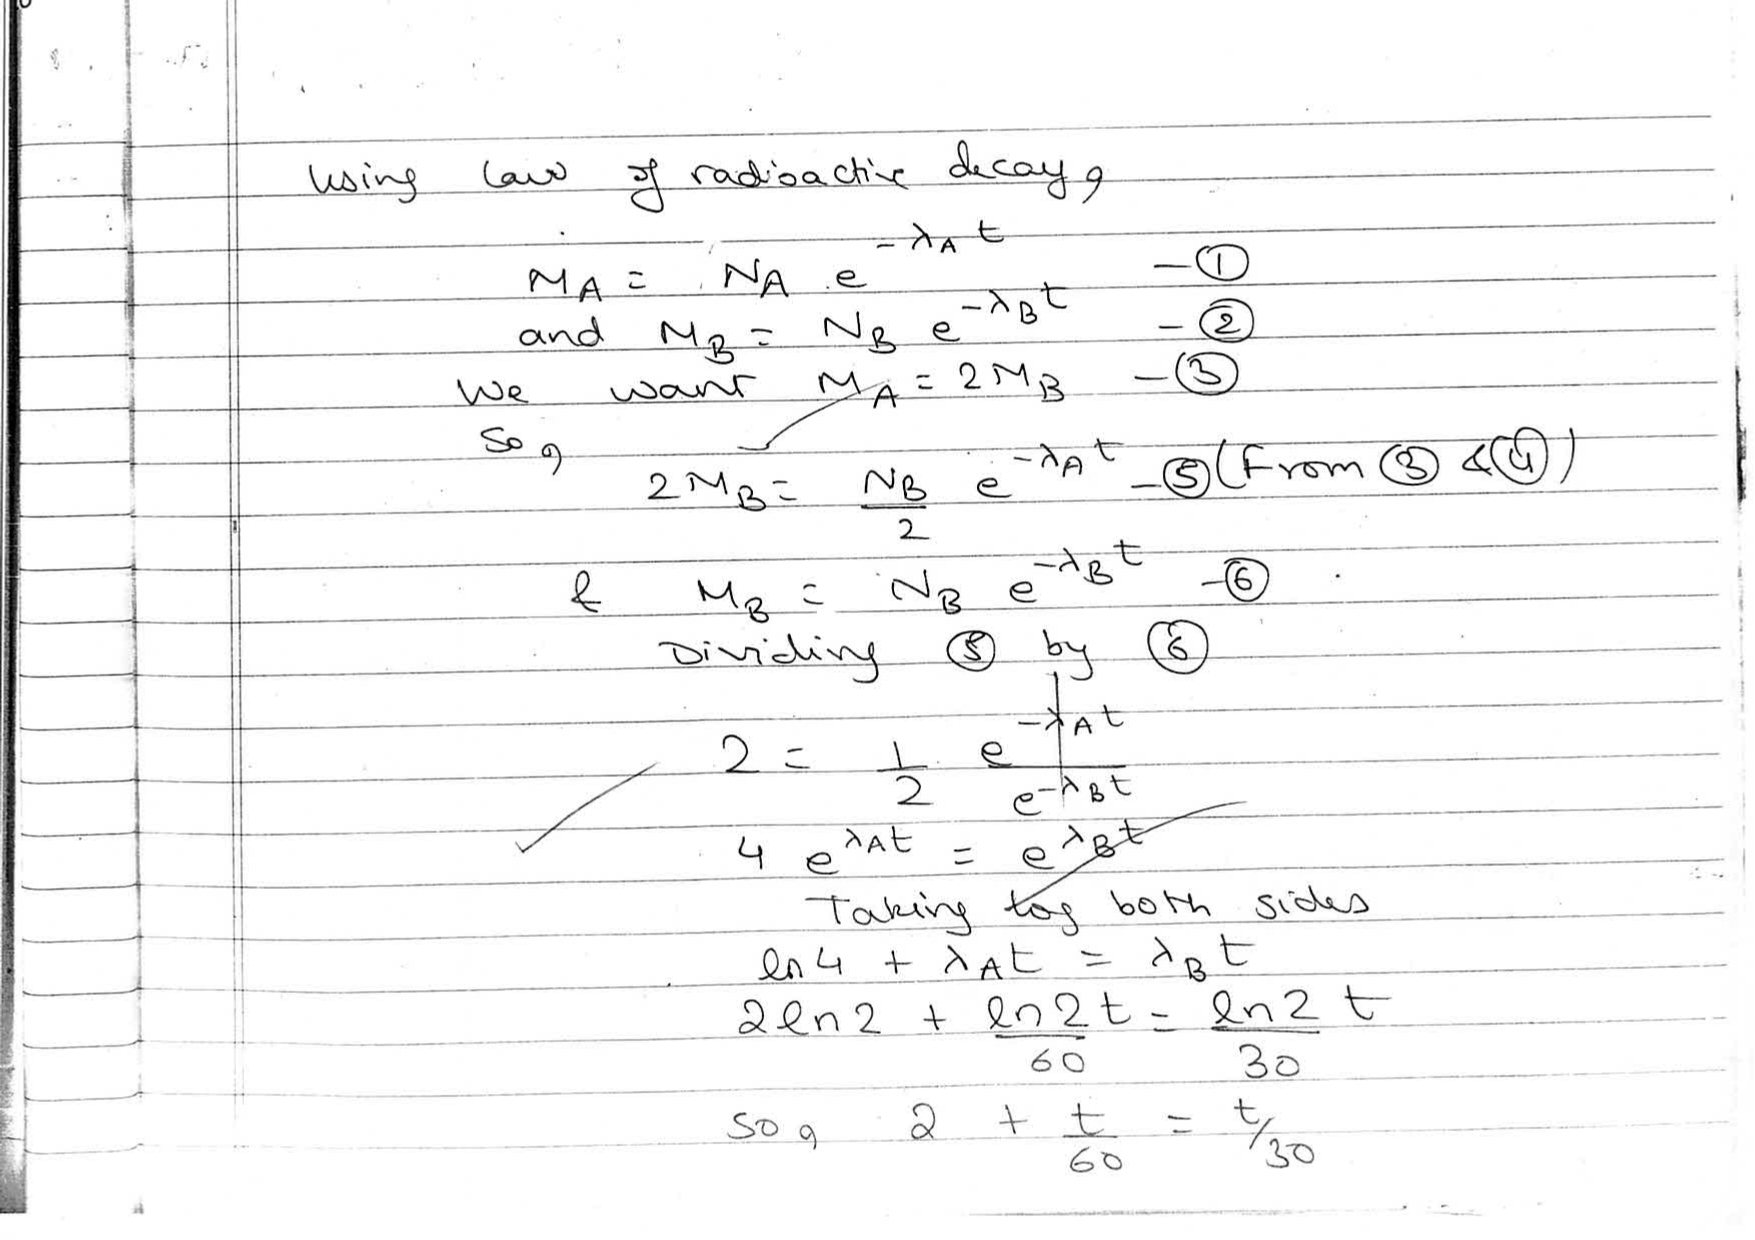 Using law of radioactive decay,
M_A = N_A e^{-λ_A t} - ①
and M_B = N_B e^{-λ_B t} - ②
We want M_A = 2M_B - ③
So,
2M_B = N_B/2 e^{-λ_A t} - ⑤ (From ③ & ④)
& M_B = N_B e^{-λ_B t} - ⑥
Dividing ⑤ by ⑥
2 = 1/2 e^{-λ_A t}/e^{-λ_B t}
4 e^{λ_A t} = e^{λ_B t}
Taking log both sides
ln4 + λ_A t = λ_B t
2ln2 + ln2/60 t = ln2/30 t
So, 2 + t/60 = t/30